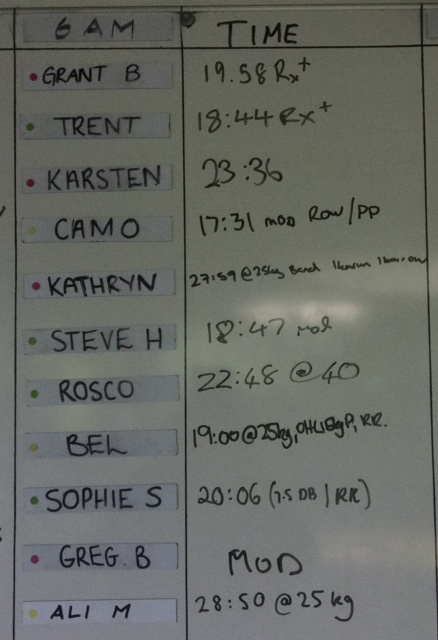 6 AM TIME
GRANT B 19.58 Rx+
TRENT 18:44 Rx+
KARSTEN 23:36
CAMO 17:31 MOD ROW/PP
KATHRYN 27:59 @25kg Bench 1km run 1km row
STEVE H 18:47 mod
ROSCO 22:48 @40
BEL 19:00@25kg, RR.
SOPHIE S 20:06 (7.5 DB / RR)
GREG. B MOD
ALI M 28:50 @25kg